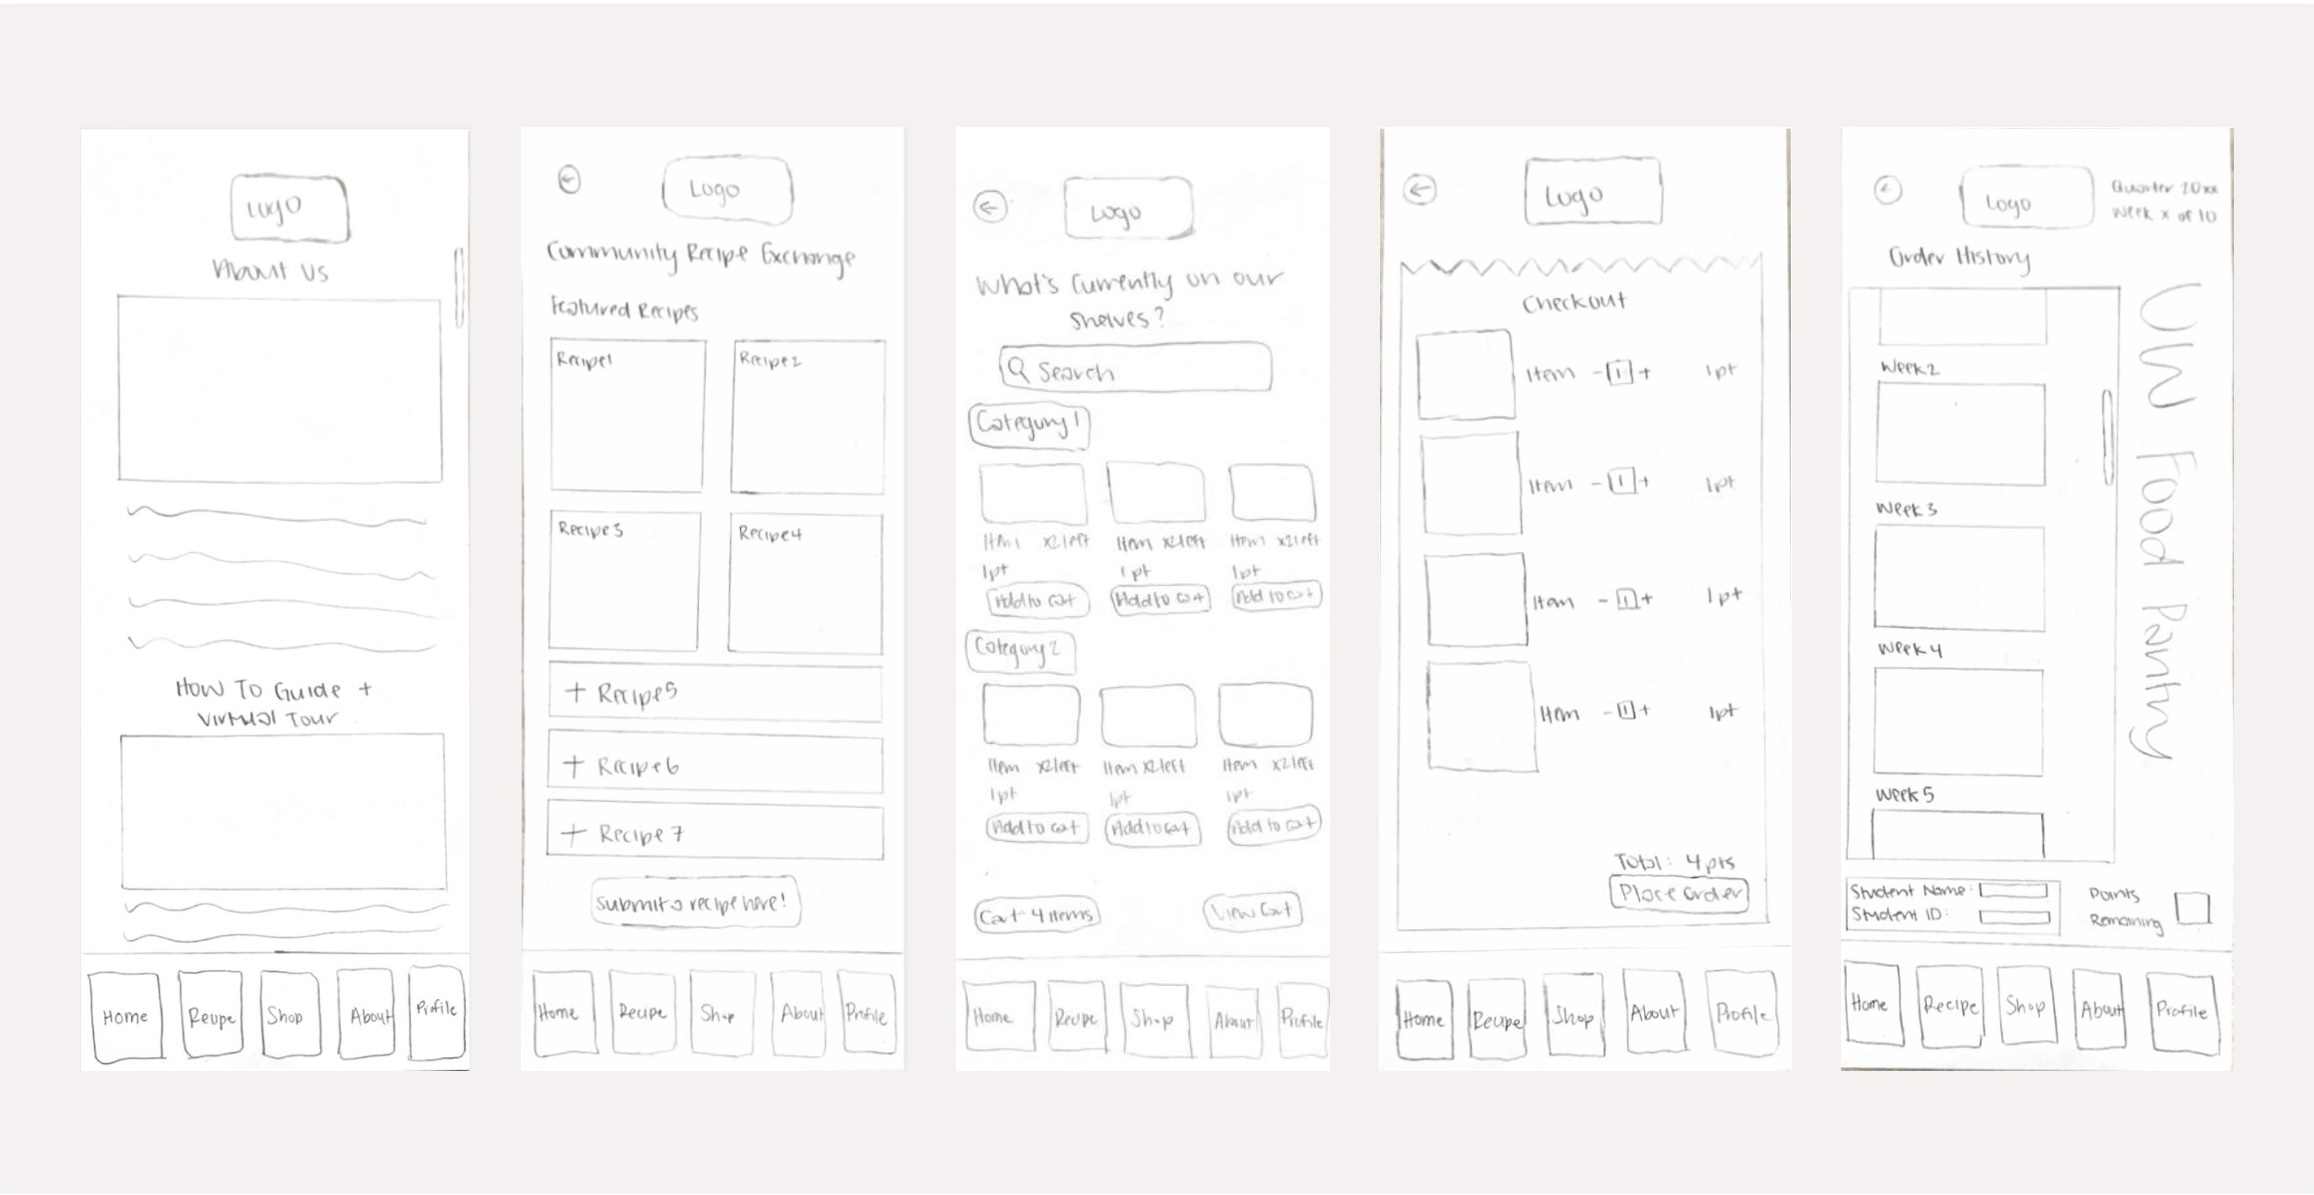 Logo
About Us
How To Guide +
Virtual Tour
Home
Recipe
Shop
About
Profile
Logo
Community Recipe Exchange
Featured Recipes
Recipe1
Recipe2
Recipe3
Recipe4
+ Recipe5
+ Recipe6
+ Recipe7
Submit a recipe here!
Home
Recipe
Shop
About
Profile
Logo
What's Currently on our
Shelves?
Search
Category 1
Item x2 left
Item x2 left
Item x2 left
1pt
1pt
1pt
Add to cart
Add to cart
Add to cart
Category 2
Item x2 left
Item x2 left
Item x2 left
1pt
1pt
1pt
Add to cart
Add to cart
Add to cart
Cart 4 items
View Cart
Home
Recipe
Shop
About
Profile
Logo
Checkout
Item - 1 + 1pt
Item - 1 + 1pt
Item - 1 + 1pt
Item - 1 + 1pt
Total: 4pts
Place Order
Home
Recipe
Shop
About
Profile
Logo
Quarter 20xx
Week x of 10
Order History
Week 2
Week 3
Week 4
Week 5
UW Food Pantry
Student Name:
Student ID:
Points
Remaining
Home
Recipe
Shop
About
Profile